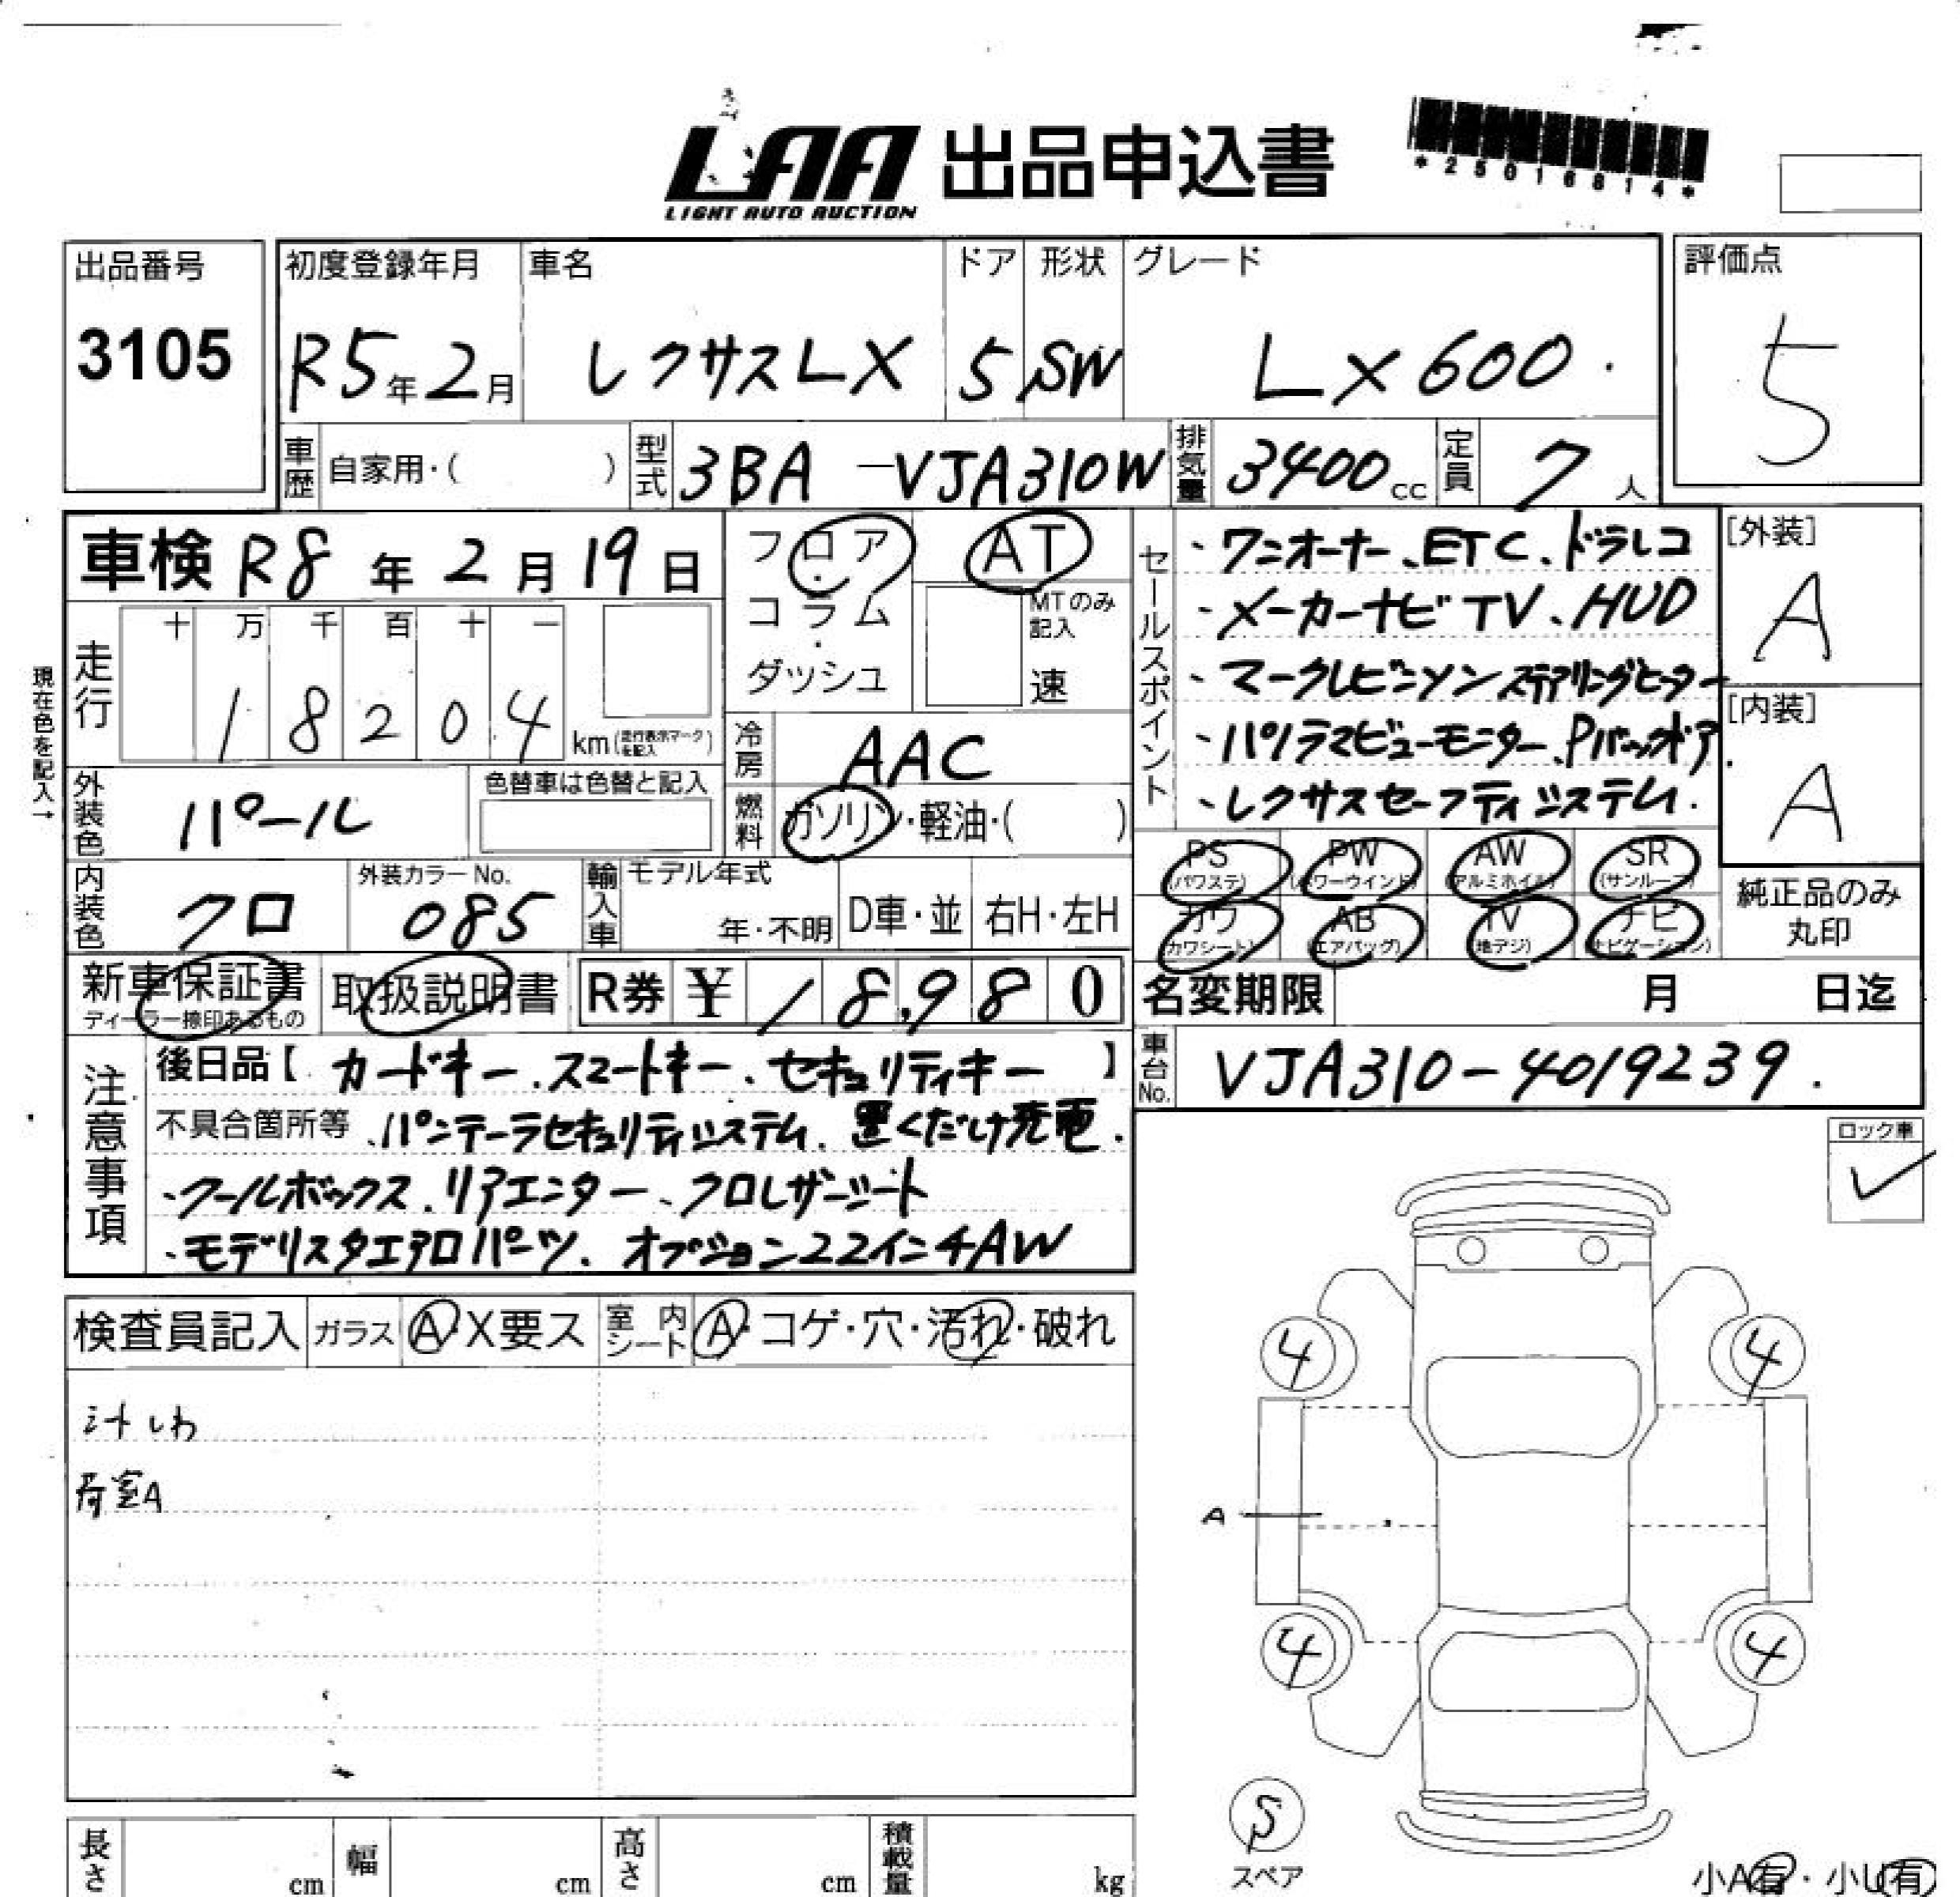 LAA 出品申込書
LIGHT AUTO AUCTION
*25016814*
出品番号 初度登録年月 車名 ドア 形状 グレード 評価点
3105 R5年2月 レクサスLX 5 SW LX600. 5
車歴 自家用・( ) 型式 3BA-VJA310W 排気量 3400cc 定員 7人
車検 R8年2月19日
フロア・コラム・ダッシュ
AT
MTのみ記入
速
セールスポイント
・ワンオーナー、ETC、ドラレコ
・メーカーナビTV、HUD
・マークレビンソン ステアリングヒーター
・パノラマビューモニター、Pバックドア
・レクサスセーフティシステム.
[外装]
A
[内装]
A
現在色を記入→
走行 十 万 千 百 十 一
18204 km(走行表示マークを記入)
冷房 AAC
外装色 パール 色替車は色替と記入
燃料 ガソリン・軽油・( )
内装色 クロ 外装カラーNo. 085
輸入車 モデル年式 年・不明 D車・並 右H・左H
PS(パワステ) PW(パワーウインド) AW(アルミホイル) SR(サンルーフ)
カワ(カワシート) AB(エアバッグ) TV(地デジ) ナビ(ナビゲーション)
純正品のみ丸印
新車保証書 ディーラー捺印あるもの 取扱説明書 R券 ¥18,980
名変期限 月 日迄
車台No. VJA310-4019239.
注意事項
後日品【カードキー、スマートキー、セキュリティキー】
不具合箇所等 、パンテーラセキュリティシステム、置くだけ充電.
、クールボックス、リアエンター、クロレザーシート
・モデリスタエアロパーツ、オプション22インチAW
ロック車
検査員記入 ガラス A・X要ス 室内シート A・コゲ・穴・汚れ・破れ
シートしわ
荷室A
4 4
A
4 4
S
スペア
小A有・小U有
長さ cm 幅 cm 高さ cm 積載量 kg